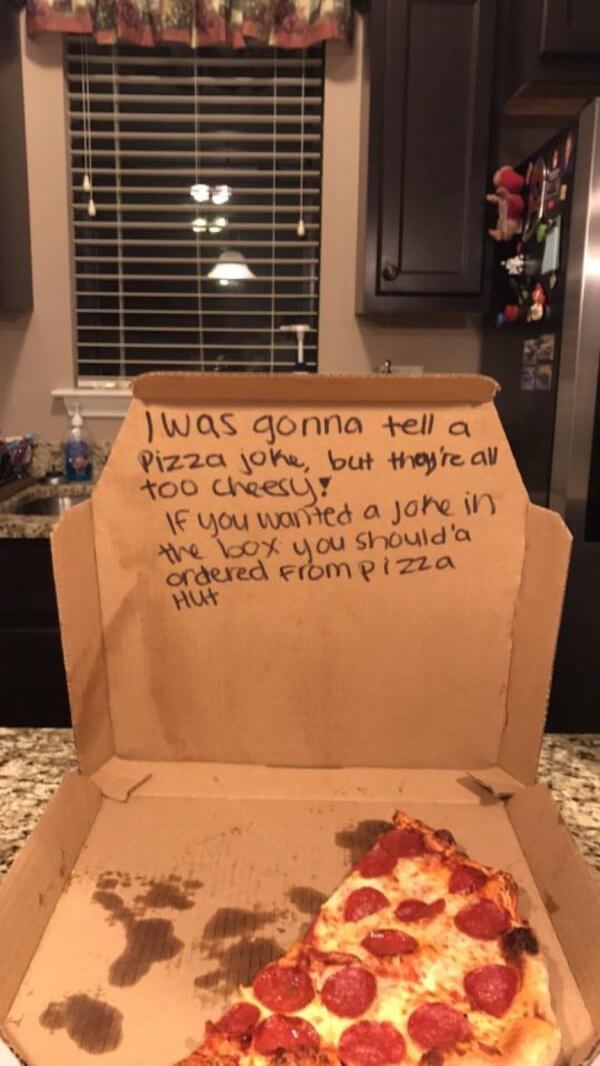 I was gonna tell a
Pizza joke, but they're all
too cheesy!
IF you wanted a joke in
the box you should'a
ordered From pizza
Hut